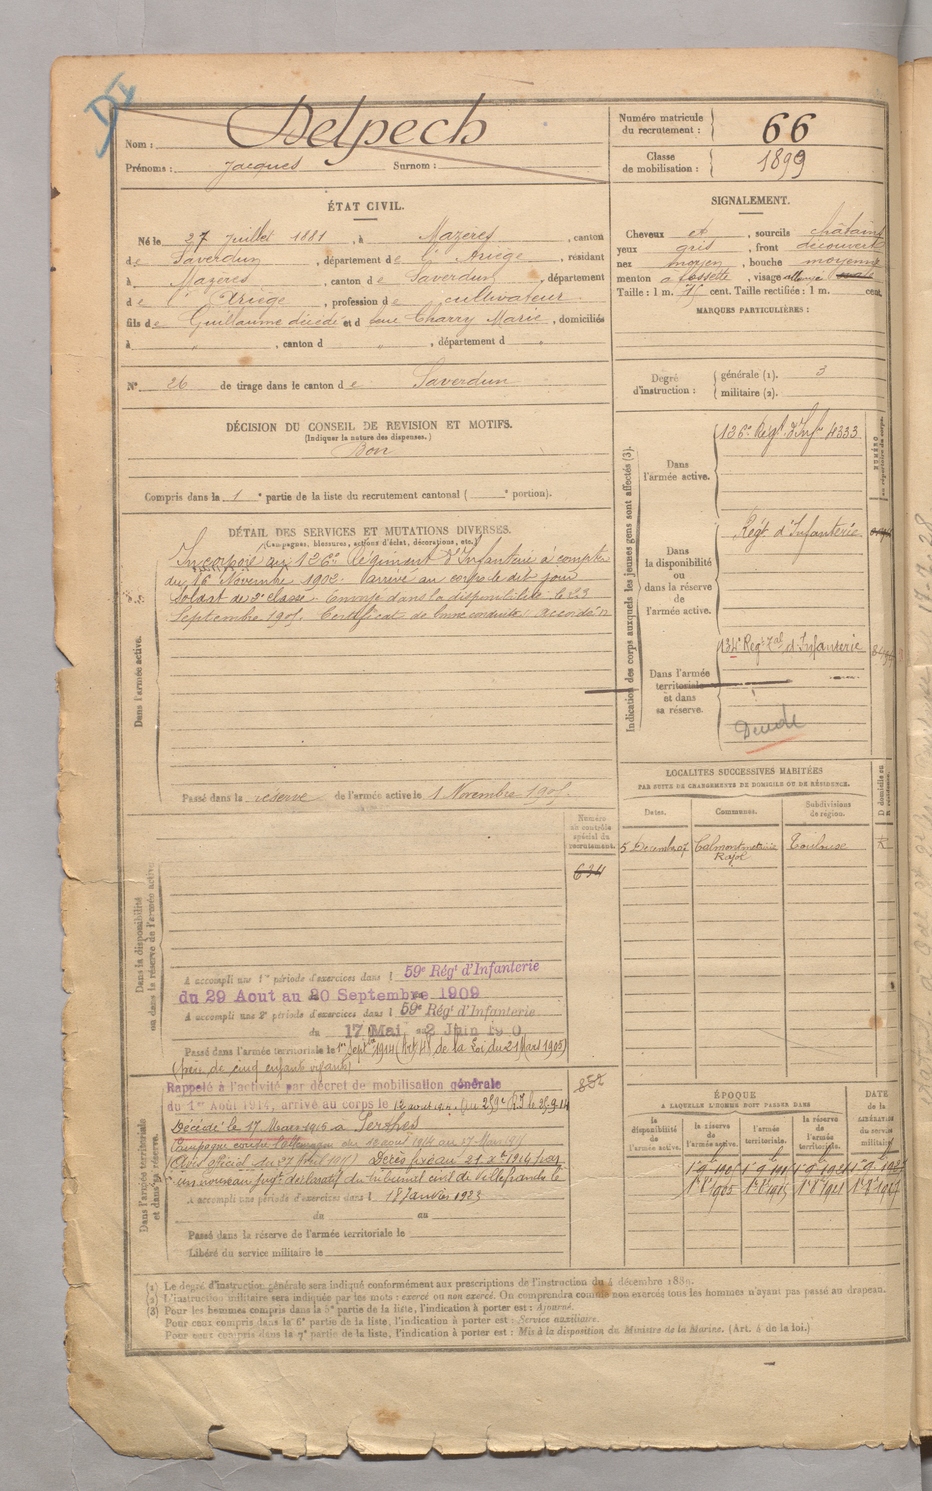 Nom : Delpech
Prénoms : Jacques Surnom :
Numéro matricule du recrutement : 66
Classe de mobilisation : 1899
ÉTAT CIVIL.
Né le 27 Juillet 1881, à Mazères, canton
de Saverdun, département de l'Ariège, résidant
à Mazères, canton de Saverdun, département
de l'Ariège, profession de cultivateur
fils de Guillaume décédé et d feue Charry Marie, domiciliés
à " , canton d " , département d "
N° 26 de tirage dans le canton de Saverdun
SIGNALEMENT.
Cheveux et , sourcils châtains
yeux gris , front découvert
nez moyen , bouche moyenne
menton à fossette , visage allongé
Taille : 1 m. 75 cent. Taille rectifiée : 1 m. cent.
MARQUES PARTICULIÈRES :
Degré d'instruction : générale (1). 3
militaire (2).
DÉCISION DU CONSEIL DE REVISION ET MOTIFS.
(Indiquer la nature des dispenses.)
Bon
Compris dans la 1e partie de la liste du recrutement cantonal ( e portion).
DÉTAIL DES SERVICES ET MUTATIONS DIVERSES.
(Campagnes, blessures, actions d'éclat, décorations, etc.)
Dans l'armée active.
Incorporé au 126e Régiment d'Infanterie à compter
du 16 Novembre 1902. Arrivé au corps le dit jour
Soldat de 2e classe. Envoyé dans la disponibilité le 23
Septembre 1905. Certificat de bonne conduite : accordé
Passé dans la réserve de l'armée active le 1 Novembre 1905.
Indication des corps auxquels les jeunes gens sont affectés (3).
NUMÉRO
Dans l'armée active. 126e Régt d'Infie 4333
Dans la disponibilité ou dans la réserve de l'armée active. Régt d'Infanterie
Dans l'armée territoriale et dans sa réserve. 134e Régt Tal d'Infanterie
Décédé
LOCALITÉS SUCCESSIVES HABITÉES
PAR SUITE DE CHANGEMENTS DE DOMICILE OU DE RÉSIDENCE.
Dates. Communes. Subdivisions de région. D domicile ou R résidence.
5 Décembre 07 Calmont métairie Toulouse R
Dans la disponibilité ou dans la réserve de l'armée active.
Numéro au contrôle spécial du recrutement.
634
A accompli une 1re période d'exercices dans l 59e Régt d'Infanterie
du 29 Aout au 20 Septembre 1909
A accompli une 2e période d'exercices dans l 59e Régt d'Infanterie
du 17 Mai au 2 Juin
Passé dans l'armée territoriale le 1er Septbre 1914 (Art 48 de la Loi du 21 Mars 1905)
(père de cinq enfants vivants)
Dans l'armée territoriale et dans sa réserve.
Rappelé à l'activité par décret de mobilisation générale
du 1er Août 1914, arrivé au corps le 12 août 1914. Passé 259e R.I. le 25.9.14
Décédé le 17 Mars 1915 à Perthes
Campagne contre l'Allemagne du 12 août 1914 au 17 Mars 1915
(Avis officiel du 27 Avril 1915) Décès fixé au 21 Xbre 1914 par
un nouveau jugt déclaratif du tribunal civil de Villefranche le
A accompli une période d'exercices dans l 18 Janvier 1923
du au
Passé dans la réserve de l'armée territoriale le
Libéré du service militaire le
ÉPOQUE
A LAQUELLE L'HOMME DOIT PASSER DANS
la disponibilité de l'armée active. la réserve de l'armée active. l'armée territoriale. la réserve de l'armée territoriale. DATE de la LIBÉRATION du service militaire.
(1) Le degré d'instruction générale sera indiqué conformément aux prescriptions de l'instruction du 4 décembre 1889.
(2) L'instruction militaire sera indiquée par les mots : exercé ou non exercé. On comprendra comme non exercés tous les hommes n'ayant pas passé au drapeau.
(3) Pour les hommes compris dans la 5e partie de la liste, l'indication à porter est : Ajourné.
Pour ceux compris dans le 6e partie de la liste, l'indication à porter est : Service auxiliaire.
Pour ceux compris dans la 7e partie de la liste, l'indication à porter est : Mis à la disposition du Ministre de la Marine. (Art. 4 de la loi.)